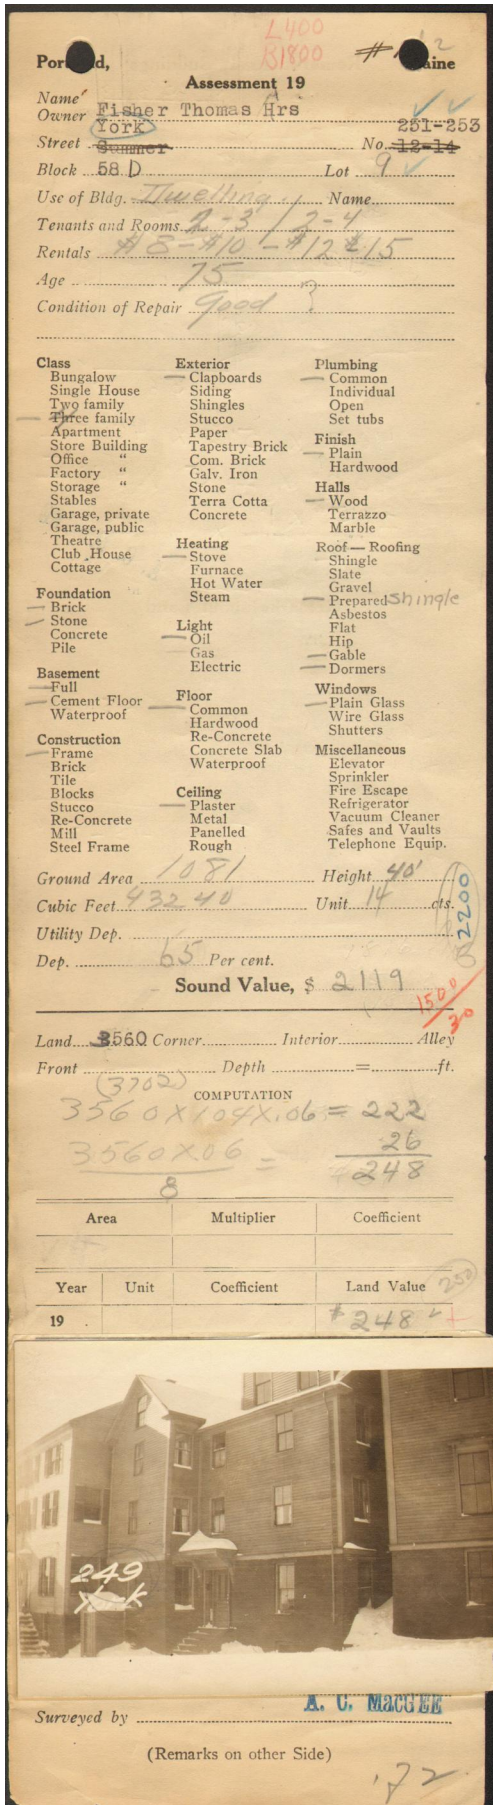 L400
B1800
Portland, Maine
Assessment 19
Name
Owner Fisher Thomas Hrs
York 251-253
Street Summer No. 12-14
Block 58 D Lot 9
Use of Bldg. Dwelling Name
Tenants and Rooms 2-3 / 2-4
Rentals $8-$10-$12 $15
Age 75
Condition of Repair Good ?
Class
Bungalow
Single House
Two family
Three family
Apartment
Store Building
Office "
Factory "
Storage "
Stables
Garage, private
Garage, public
Theatre
Club House
Cottage
Foundation
Brick
Stone
Concrete
Pile
Basement
Full
Cement Floor
Waterproof
Construction
Frame
Brick
Tile
Blocks
Stucco
Re-Concrete
Mill
Steel Frame
Exterior
Clapboards
Siding
Shingles
Stucco
Paper
Tapestry Brick
Com. Brick
Galv. Iron
Stone
Terra Cotta
Concrete
Heating
Stove
Furnace
Hot Water
Steam
Light
Oil
Gas
Electric
Floor
Common
Hardwood
Re-Concrete
Concrete Slab
Waterproof
Ceiling
Plaster
Metal
Panelled
Rough
Plumbing
Common
Individual
Open
Set tubs
Finish
Plain
Hardwood
Halls
Wood
Terrazzo
Marble
Roof — Roofing
Shingle
Slate
Gravel
Prepared shingle
Asbestos
Flat
Hip
Gable
Dormers
Windows
Plain Glass
Wire Glass
Shutters
Miscellaneous
Elevator
Sprinkler
Fire Escape
Refrigerator
Vacuum Cleaner
Safes and Vaults
Telephone Equip.
Ground Area 1081 Height 40'
Cubic Feet 43240 Unit 14 cts.
2200
Utility Dep.
Dep. 65 Per cent.
Sound Value, $ 2119
1500
30
Land 3560 Corner Interior Alley
Front Depth = ft.
(3702)
COMPUTATION
3560 X 104 X .06 = 222
3560 X 06 = 26
8 248
Area Multiplier Coefficient
Year Unit Coefficient Land Value 250
19 $248
249
York
A. C. MacGEE
Surveyed by
(Remarks on other Side)
'72